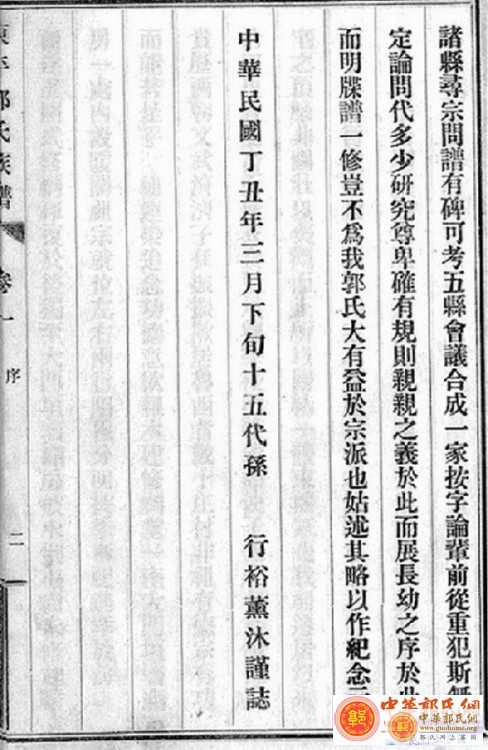 諸縣尋宗問譜有碑可考五縣會議合成一家按字論輩前從重犯斯無
定論問代多少研究尊卑確有規則親親之義於此而展長幼之序於此
而明牒譜一修豈不爲我郭氏大有益於宗派也姑述其略以作紀念云
中華民國丁丑年三月下旬十五代孫 行裕薰沐謹誌
東平郭氏族譜 卷一 序 二
中華郭氏網
中華郭氏网
www.guohome.org
郭氏网上家园